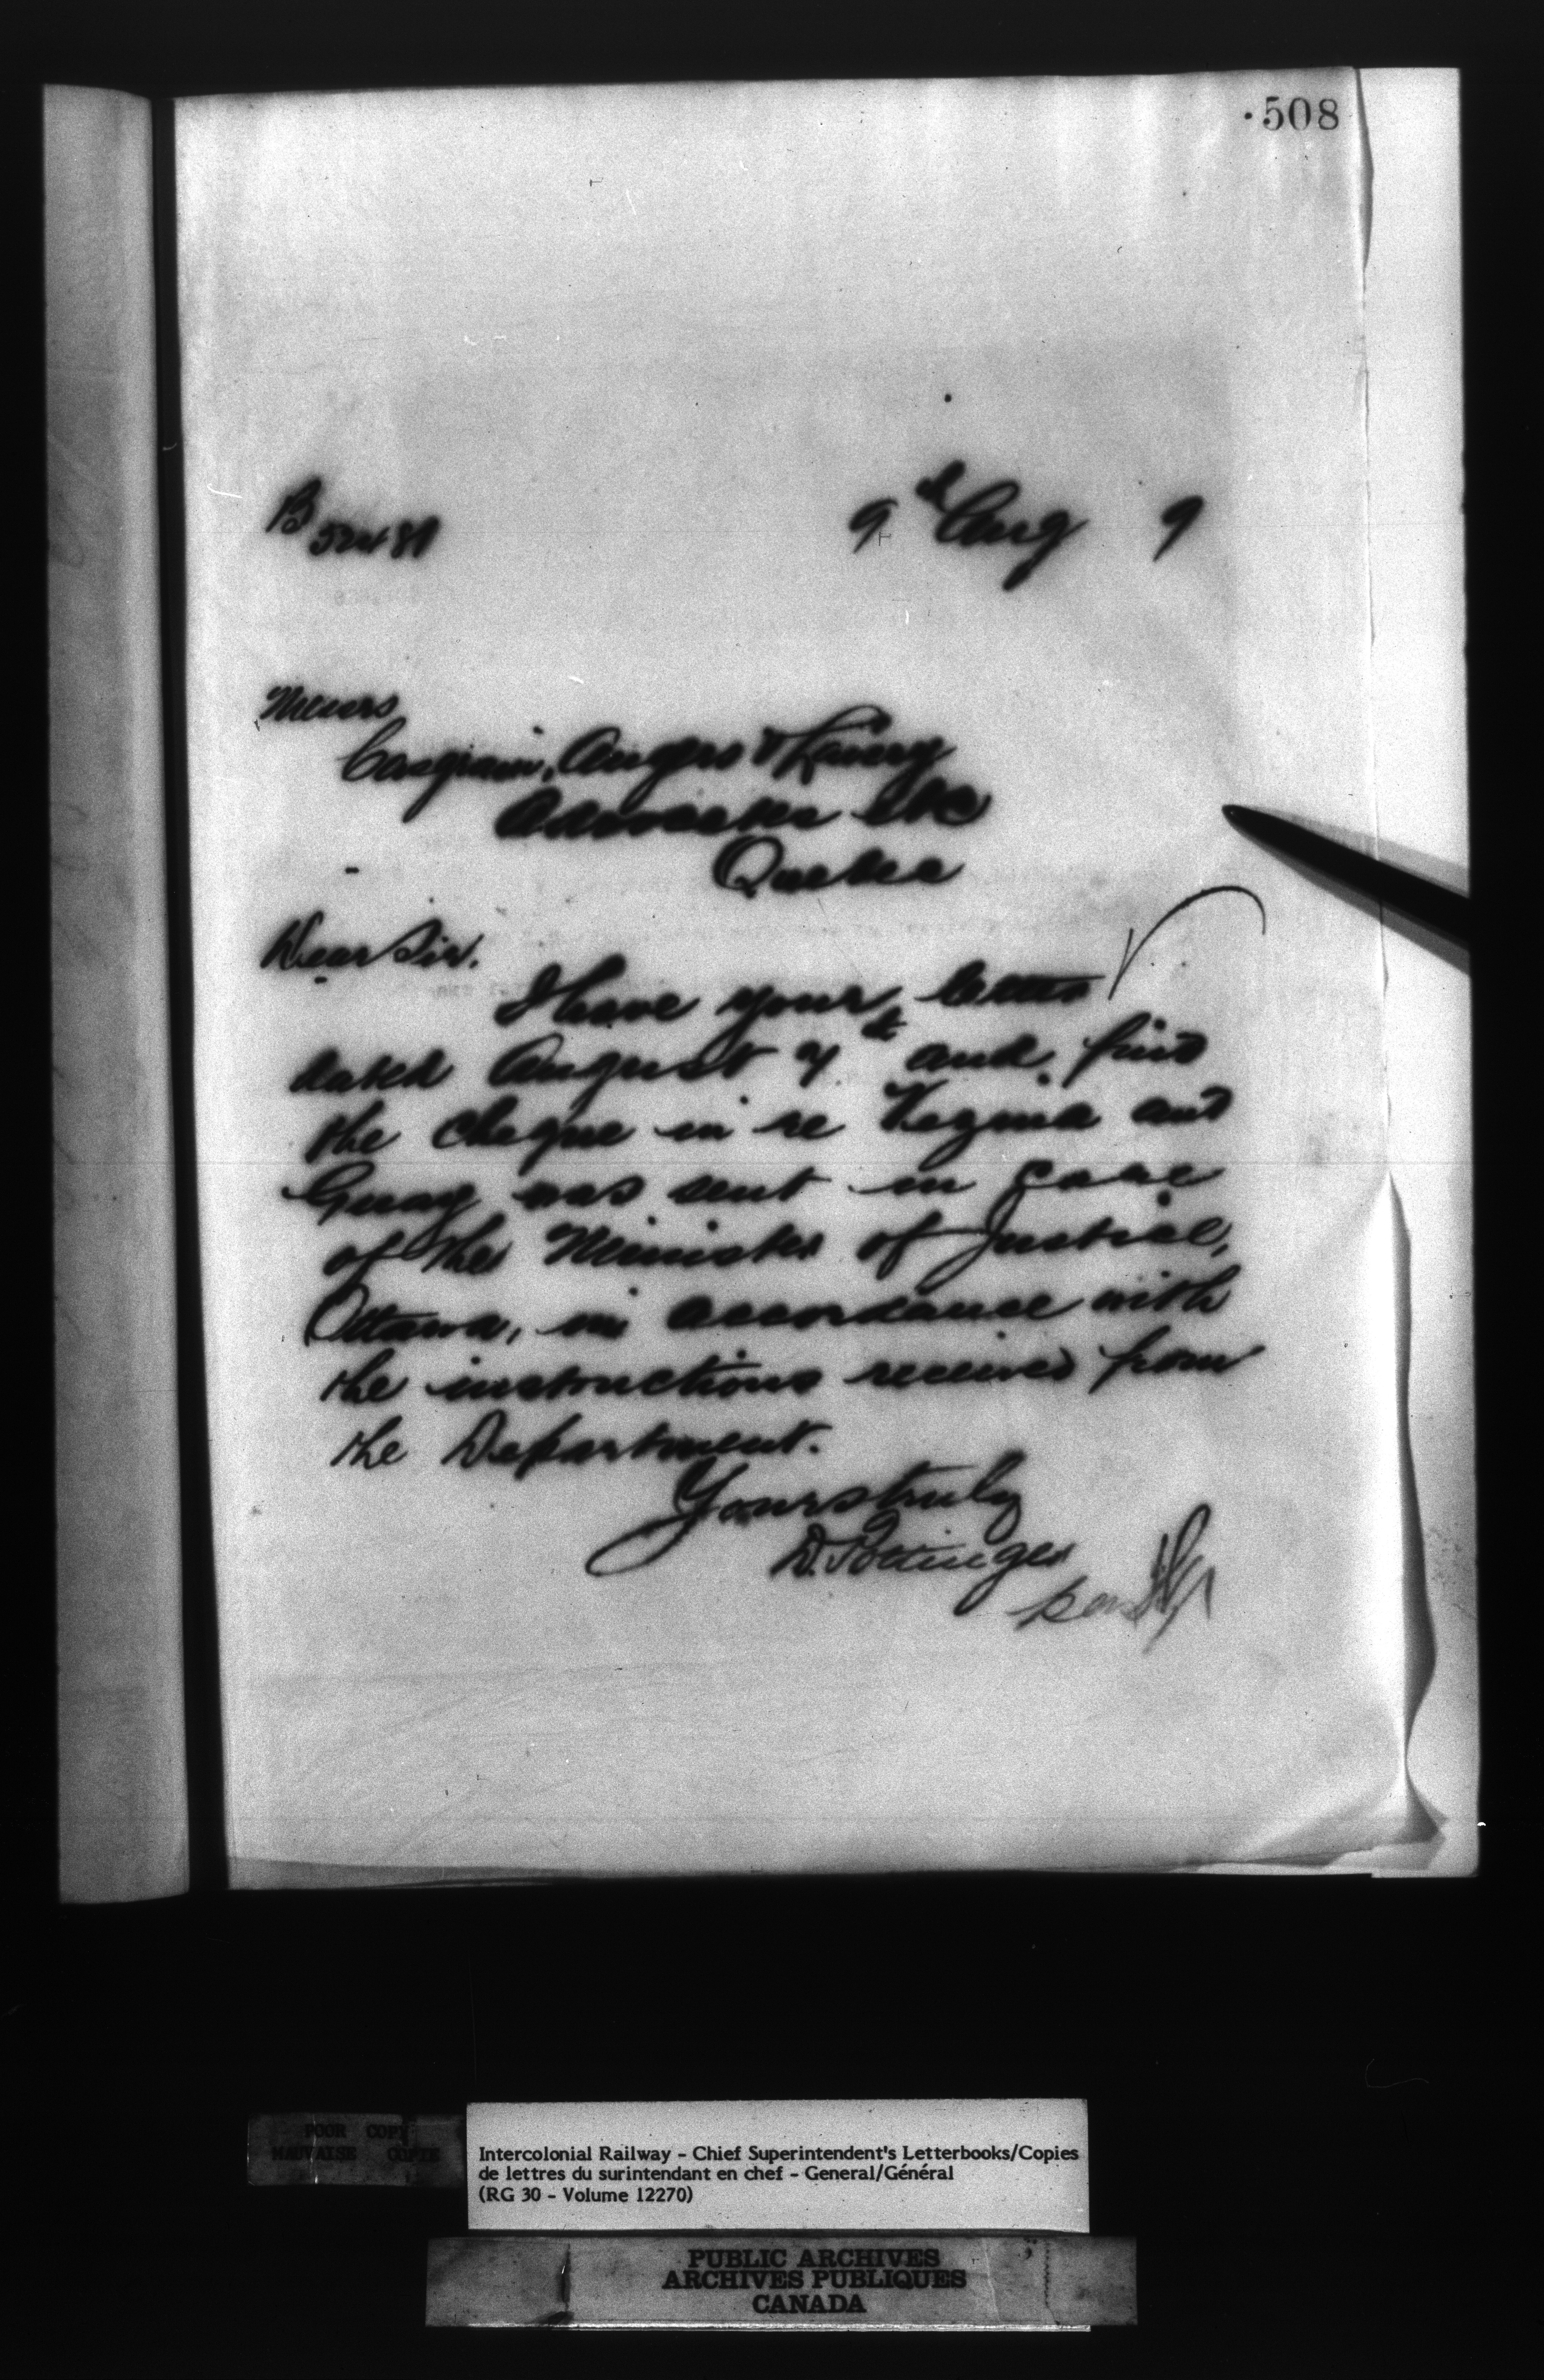 508
9th Aug 9
Messrs
Casgrain, Angers & Lavery
Advocates etc
Quebec
Dear Sir.
I have your letter
dated August 7th and find
the cheque in re Vezina and
Guay was sent in care
of the Minister of Justice,
Ottawa, in accordance with
the instructions received from
the Department.
Yours truly
D. Pottinger
per
POOR COPY
MAUVAISE COPIE
Intercolonial Railway - Chief Superintendent's Letterbooks/Copies
de lettres du surintendant en chef - General/Général
(RG 30 - Volume 12270)
PUBLIC ARCHIVES
ARCHIVES PUBLIQUES
CANADA